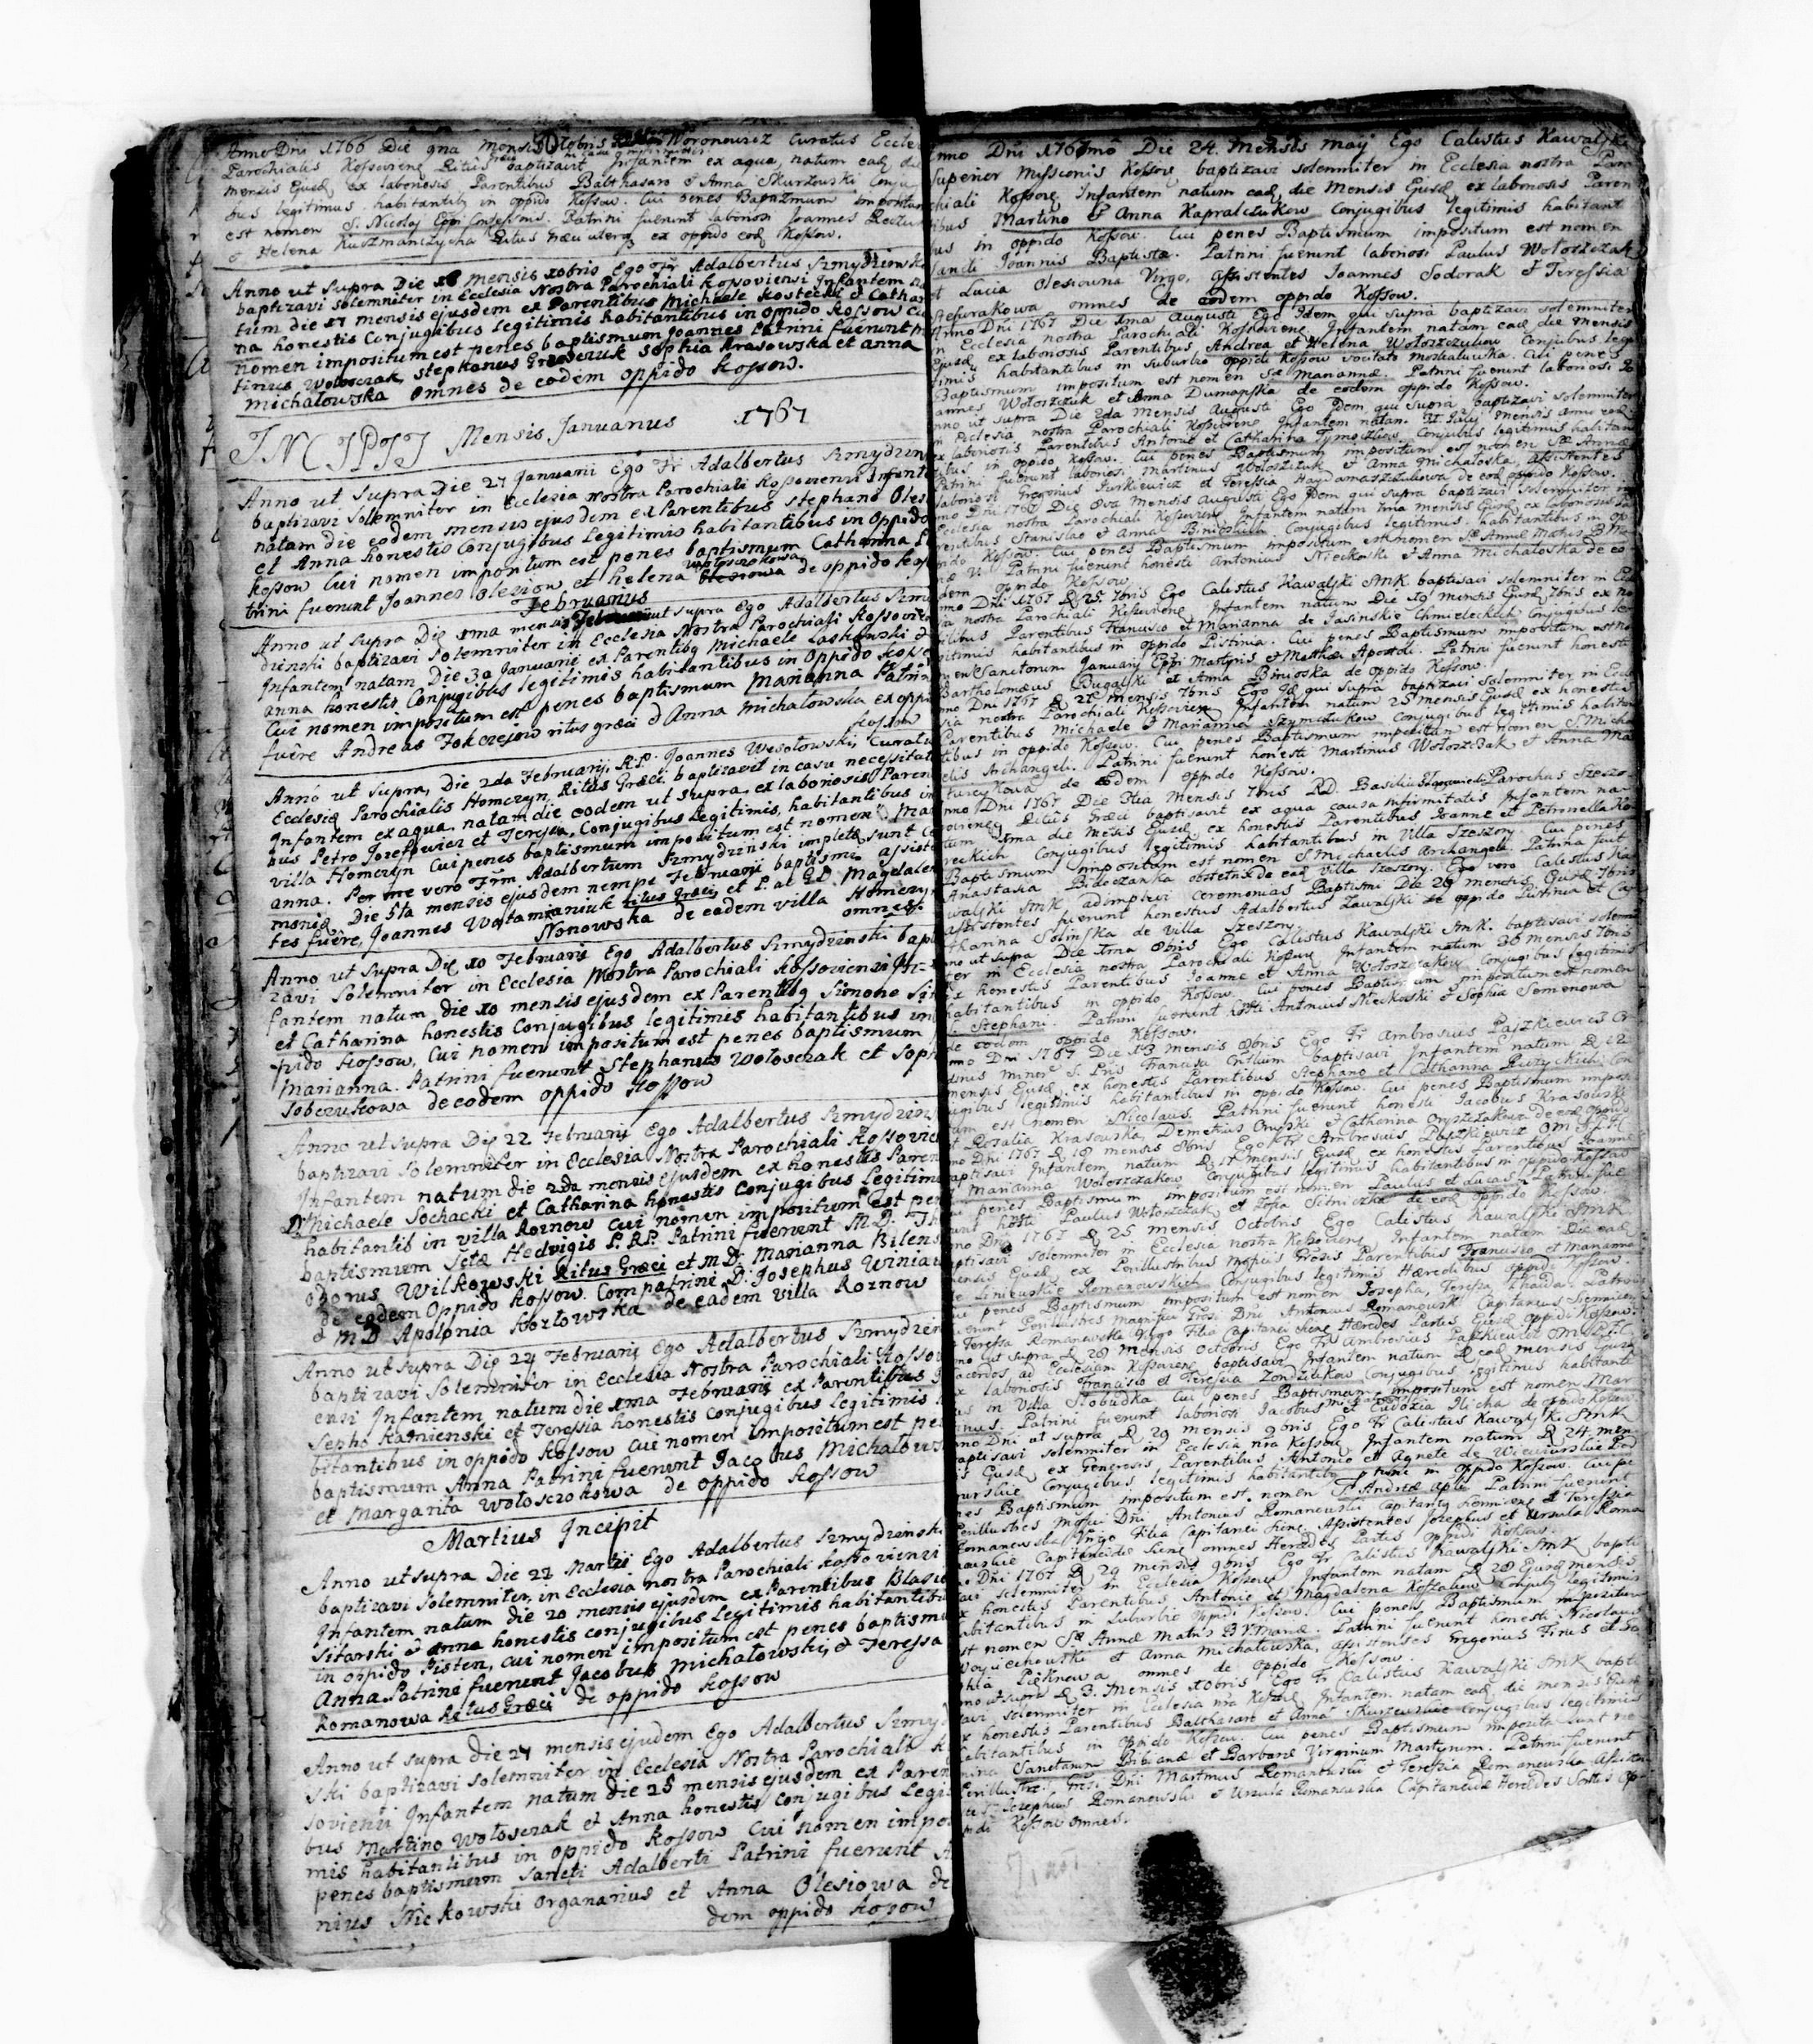 Anno Dni 1766 Die 9na Mensis Xbris Woronowicz Curatus Eccle
Parochialis Kossoviens Ritus Græci baptizavit Infantem ex aqua, natum ead die
mensis Ejusd, ex laboriosis Parentibus Balthasaro & Anna Skurzewski Conju
bus legitimis habitantib in oppido Kossow. Cui penes Baptismum impositum
est nomen S. Nicolaj Eppi Confessoris. Patrini fuerunt laboriosi Joannes
& Helena Kuszmanczycha Ritus Græci uterq ex oppido eod Kossow.
Anno ut supra Die 18 Mensis xobris Ego Fr Adalbertus Szmydzinski
baptizavi solemniter in Ecclesia Nostra Parochiali Kossoviensi Infantem na
tum die 17 mensis ejusdem ex Parentibus Michaele Kostecki et Cathar
na honestis Conjugibus legitimis habitantibus in oppido Kossow cui
nomen impositum est penes baptismum Joannes Patrini fuerunt
tinius Wołosczak, Stephanus Grzesczuk Sophia Krasowska et Anna
Michałowska Omnes de eodem oppido Kossow.
INCIPIT Mensis Januarius 1767
Anno ut supra Die 27 Januarii Ego Fr Adalbertus Szmydzin
baptizavi Solemniter in Ecclesia Nostra Parochiali Kossoviensi Infante
natam die eodem mensis ejusdem ex Parentibus Stephano Oles
et Anna honestis Conjugibus legitimis habitantibus in Oppido
Kossow Cui nomen impositum est penes baptismum Catharina Pa
trini fuerunt Joannes Olesiow et Helena Wołosczokowa de oppido Kos
Februarius
Anno ut supra Die 1ma mensis Februarii ut supra Ego Adalbertus Szmy
dzinski baptizavi Solemniter in Ecclesia Nostra Parochiali Kossovien
Infantem natam Die 30 Januarii ex Parentibq Michaele Laskowski &
Anna honestis Conjugibus legitimis habitantibus in Oppido Kossow
Cui nomen impositum est penes baptismum Marianna Patrini
fuêre Andreas Fokczejow ritus græci & Anna Michałowska ex oppi
Kossow
Anno ut supra, Die 2da Februarij R.P. Joannes Wesołowski, Curatus
Ecclesiæ Parochialis Homczyn, Ritus Græci baptizavit in casu necessitatis
Infantem ex aqua, natam die eodem ut supra ex laboriosis Paren
bus Petro Jozefowicz et Teressa, Conjugibus Legitimis, habitantibus in
villa Homczyn Cui penes baptismum impositum est nomen Mari
anna. Per me vero Frm Adalbertum Szmydzinski impletæ sunt ce
moniæ Die 5ta mensis ejusdem nempe Februarij baptismi assisten
tes fuêre, Joannes Wołamianiuk ritus græci, et P. al GD. Magdalen
Nonowska de eadem villa Homczyn
omnes
Anno ut supra Die 10 Februarij Ego Adalbertus Szmydzinski bapti
zavi Solemniter in Ecclesia Nostra Parochiali Kossoviensi In-
fantem natam, die 10 mensis ejusdem ex Parentibq Simone
et Catharina honestis Conjugibus legitimis habitantibus in
pido Kossow, Cui nomen impositum est penes baptismum
Marianna. Patrini fuerunt Stephanus Wołosczak et Soph
Sobczukowa de eodem oppido Kossow
Anno ut supra Die 22 Februarij Ego Adalbertus Szmydzin
baptizavi Solemniter in Ecclesia Nostra Parochiali Kossovien
Infantem natam die 2da mensis ejusdem ex honestis Paren
D. Michaele Sochacki et Catharina honestis Conjugibus legitimis
habitantib in villa Roznow cui nomen impositum est pen
baptismum Sctæ Hedvigis P.R.P. Patrini fuerunt M.D. Th
odorus Wilkowski Ritus Græci et M.D. Marianna Bilens
de eodem Oppido Kossow. Compatrini, D. Josephus Winiaw
& M.D. Apolonia Kozłowska de eadem villa Roznow
Anno ut supra Die 24 Februarij Ego Adalbertus Szmydzin
baptizavi Solemniter in Ecclesia Nostra Parochiali Kossov
ensi Infantem natam die 1ma Februarij ex Parentibus
Sepho Kamienski et Teressia honestis Conjugibus legitimis
bitantibus in oppido Kossow cui nomen impositum est pe
baptismum Anna Patrini fuerunt Jacobus Michałows
et Margarita Wołosczokowa de oppido Kossow
Martius Incipit
Anno ut supra Die 22 Martij Ego Adalbertus Szmydzinski
baptizavi Solemniter, in Ecclesia nostra Parochiali Kossoviensi
Infantem natam die 20 mensis ejusdem ex Parentibus Blasio
Sitarski & Anna honestis conjugibus legitimis habitantibus
in oppido Pisten, cui nomen impositum est penes baptismum
Anna Patrini fuerunt Jacobus Michałowski, & Teressa
Romanowa Ritus Græci de oppido Kossow
Anno ut supra Die 27 mensis ejusdem Ego Adalbertus Szmyd
ski baptizavi solemniter in Ecclesia Nostra Parochiali
soviensi Infantem natum die 25 mensis ejusdem ex Paren
bus Martino Wołosczak et Anna honestis Conjugibus Legi
mis habitantibus in oppido Kossow Cui nomen impo
penes baptismum Sancti Adalberti Patrini fuerunt
nius Nickowski organarius et Anna Olesiowa de
dem oppido Kosow
nno Dni 1767mo Die 24. Mensis Maij Ego Calistus Kawalski
Superior Missionis Kossov, baptizavi solemniter in Ecclesia nostra Paro
chiali Kossov, Infantem natum ead die Mensis Ejusd ex laboriosis Paren
tibus Martino & Anna Kapralczukow Conjugibus legitimis habitant
bus in oppido Kossow. Cui penes Baptismum impositum est nomen
Sancti Joannis Baptistæ. Patrini fuerunt laboriosi Paulus Wołoszczak
et Lucia Olesiowna Virgo, assistentes Joannes Sodorak et Teressia
Stefurakowa omnes de eodem oppido Kossow.
Anno Dni 1767 Die 1ma Augusti Ego Idem qui supra baptizavi solemniter
in Ecclesia nostra Parochiali Kossoviene, Infantem natam ead die mensis
Ejusd ex laboriosis Parentibus Andrea et Helena Wołoszczukow Conjubus legi
timis habitantibus in suburbio oppidi Kossow vocitato Moskalowka. Cui penes
Baptismum impositum est nomen Sæ Mariannæ. Patrini fuerunt laboriosi Jo
annes Wołoszczuk et Anna Dumanska de eodem oppido Kossow.
nno ut supra Die 2da Mensis Augusti Ego Idem qui supra baptizavi solemniter
in Ecclesia nostra Parochiali Kossoviene Infantem natam 31 Julij mensis anni eod
ex laboriosis Parentibus Antonio et Catharina Tymoczkow Conjubus legitimis habitan
tibus in oppido Kossow. Cui penes Baptismum impositum est nomen Sæ Annæ
Patrini fuerunt laboriosi Martinus Wołoszczuk & Anna Michałoska, assistentes
laboriosi Gregorius Jurkiewicz et Teressia Haydamaszczukowa de eod oppido Kossow.
nno Dni 1767 Die 8va Mensis Augusti Ego Idem qui supra baptizavi solemniter in
Ecclesia nostra Parochiali Kossoviene Infantem natam 1ma mensis Ejusd ex laboriosis Pa
rentibus Stanislao et Anna Binieckich Conjugibus legitimis habitantibus in op
pido Kossow. Cui penes Baptismum impositum est nomen Sæ Annæ Matris B. Ma
riæ V. Patrini fuerunt honesti Antonius Nieckoski & Anna Michałoska de eo
dem oppido Kossow.
nno Dni 1767 D 25. 7bris Ego Calistus Kawalski SMK baptisavi solemniter in Eccl
sia nostra Parochiali Kossoviene, Infantem natum Die 19 mensis Ejusd 7bris ex no
bilibus Parentibus Francisco et Marianna de Jasinskie Chmieleckich Conjugibus le
gitimis habitantibus in oppido Pistinia. Cui penes Baptismum impositum est no
men Sanctorum Januarij Eppi Martyris & Matthæi Apostoli. Patrini fuerunt honesti
Bartholomæus Bugalski et Anna Binioska de oppido Kossow.
nno Dni 1767 D 27 mensis 7bris Ego Id qui supra baptizavi solemniter in Eccl
sia nostra Parochiali Kossovien Infantem natum 25 mensis Ejusd ex honestis
Parentibus Michaele & Marianna Szymczukow Conjugibus legitimis habitan
tibus in oppido Kossow. Cui penes Baptismum impositum est nomen S. Micha
elis Archangeli. Patrini fuerunt honesti Martinus Wołoszczak, et Anna Ma
turczykowa de eodem oppido Kossow.
nno Dni 1767 Die Mensis 7bris RD. Basilius Parochus Szeszo
rovienci Ritûs Græci baptisavit ex aqua causa infirmitatis Infantem na
tum 1ma die Mensis Ejusd, ex honestis Parentibus Joanne et Petronella Ko
reckich Conjugibus legitimis habitantibus in villa Szeszory. Cui penes
Baptismum impositum est nomen S Michaelis Archangeli. Patrina fuit
Anastasia Bidoczanka obstetrix de ead villa Szeszory. Ego vero Calistus Ka
walski SMK adimplevi ceremonias Baptismi Die 29 mensis Ejusd 7bris
assistentes fuerunt honestus Adalbertus Zawalski de oppido Pistinia et Ca
tharina Solinska de villa Szeszory.
nno ut supra Die 1ma 8bris Ego Calistus Kawalski SMK. baptisavi solemni
ter in Ecclesia nostra Parochiali Kossov Infantem natum 30 mensis 7bris
ex honestis Parentibus Joanne et Anna Wołoszczakow Conjugibus legitimis
habitantibus in oppido Kossow. Cui penes Baptismum impositum est nomen
S. Stephani. Patrini fuerunt hosti Antonius Nieckoski & Sophia Semenowa
de eodem oppido Kossow.
nno Dni 1767 Die 13 Mensis 8bris Ego Fr Ambrosius Paszkiewicz Or
dinis Minor S. Pris Francisci Cntlium baptisavi Infantem natum D 12
mensis Ejusd, ex honestis Parentibus Stephano et Catharina Ruzyckich Con
jugibus legitimis habitantibus in oppido Kossow. Cui penes Baptismum impos
itum est nomen Nicolaus. Patrini fuerunt honesti Jacobus Krasoski
et Rosalia Krasowska, Demetrius Onyski et Catharina Onyszczakowa de eod oppido
nno Dni 1767 D 18 mensis 8bris Ego Fr Ambrosius Paszkiewicz OM S.P.F.C.
baptisavi Infantem natum D 17 mensis Ejusd ex honestis Parentibus Joanne
& Marianna Wołoszczakow Conjugibus legitimis habitantibus in oppido Kossow
cui penes Baptismum impositum est nomen Paulus et Lucas. Patrini fue
runt hosti Paulus Wołoszczak et Zofia Sitniczka de eod oppido Kossow.
nno Dni 1767 D 25 mensis Octobris Ego Calistus Kawalski SMK
baptisavi solemniter in Ecclesia nostra Kossoviene Infantem natam Die ead
mensis Ejusd, ex Perillustribus Mgfcis Grosis Parentibus Francisco et Marianna
de Liniewskie Romanowskich Conjugibus legitimis Hæredibus oppidi Kossow.
cui penes Baptismum impositum est nomen Josepha, Teressa, Thadæa. Patrini
fuerunt Perillustres Magnifici Grosi Dni Antonius Romanowski Capitaneus Siennicen
& Teressa Romanowska Virgo Filia Capitanei Siene Hæredes Partes Ejusd oppidi Kossow.
nno ut supra D 28 Mensis Octobris Ego Fr Ambrosius Paszkiewicz OM S.P.F.C.
Sacerdos ad Ecclesiam Kossoviene baptisavi Infantem natum D ead mensis Ejusd
ex laboriosis Francisco et Teressia Zondziukow Conjugibus legitimis habitanti
bus in Villa Słobudka cui penes Baptismum impositum est nomen Mar
tinus, Patrini fuerunt laboriosi Jacobus et Eudoxia Ilicha de oppido Kossow
nno Dni ut supra D 29 mensis 9bris Ego Fr Calistus Kawalski SMK
baptisavi solemniter in Ecclesia nra Kossov Infantem natum D 24 men
sis Ejusd, ex Generosis Parentibus, Antonio et Agnete de Wieczorskie Pod
gurskie Conjugibus legitimis habitantibq in oppido Kossow. Cui pe
nes Baptismum impositum est nomen S Andreæ Apli. Patrini fuerunt
Perillustres Mgfci Dni Antonius Romanowski Capitaneq Siennicene & Teressia
Romanewska Virgo Filia Capitanei Siene. Assistentes Josephus et Ursula Roma
nowskie Capitaneides Siene omnes Heredes Partis oppidi Kossow.
no Dni 1767 D 29 mensis 9bris Ego Fr Calistus Kawalski SMK bapti
zavi solemniter in Ecclesia Kossov Infantem natam D 28 Ejusd mensis
ex honestis Parentibus Antonio et Magdalena Koszakow Conjubq legitimis
habitantibus in suburbio oppidi Kossow. Cui penes Baptismum impositum
est nomen Sæ Annæ Matris B.V. Mariæ. Patrini fuerunt honesti Nicolaus
Woyciechowski et Anna Michałowska, assistentes Gregorius Firus et So
phia Pieknewa omnes de oppido Kossow.
nno ut supra D 3. Mensis Xbris Ego Fr Calistus Kawalski SMK bapti
zavi solemniter in Ecclesia nra Kossov Infantem natam ead die mensis Ejusd
ex honestis Parentibus Balthasare et Anna Skurzewskie Conjugibus legitimis
habitantibus in oppido Kossow. Cui penes Baptismum imposita sunt no
mina Sanctarum Bibianæ et Barbaræ Virginum Martyrum. Patrini fuerunt
Perillustres Grosi Dni Martinus Romanowski et Teressia Romanewska Assisten
tes Josephus Romanowski & Ursula Romanowska Capitaneidæ Heredes Sortis op
pidi Kossow omnes.